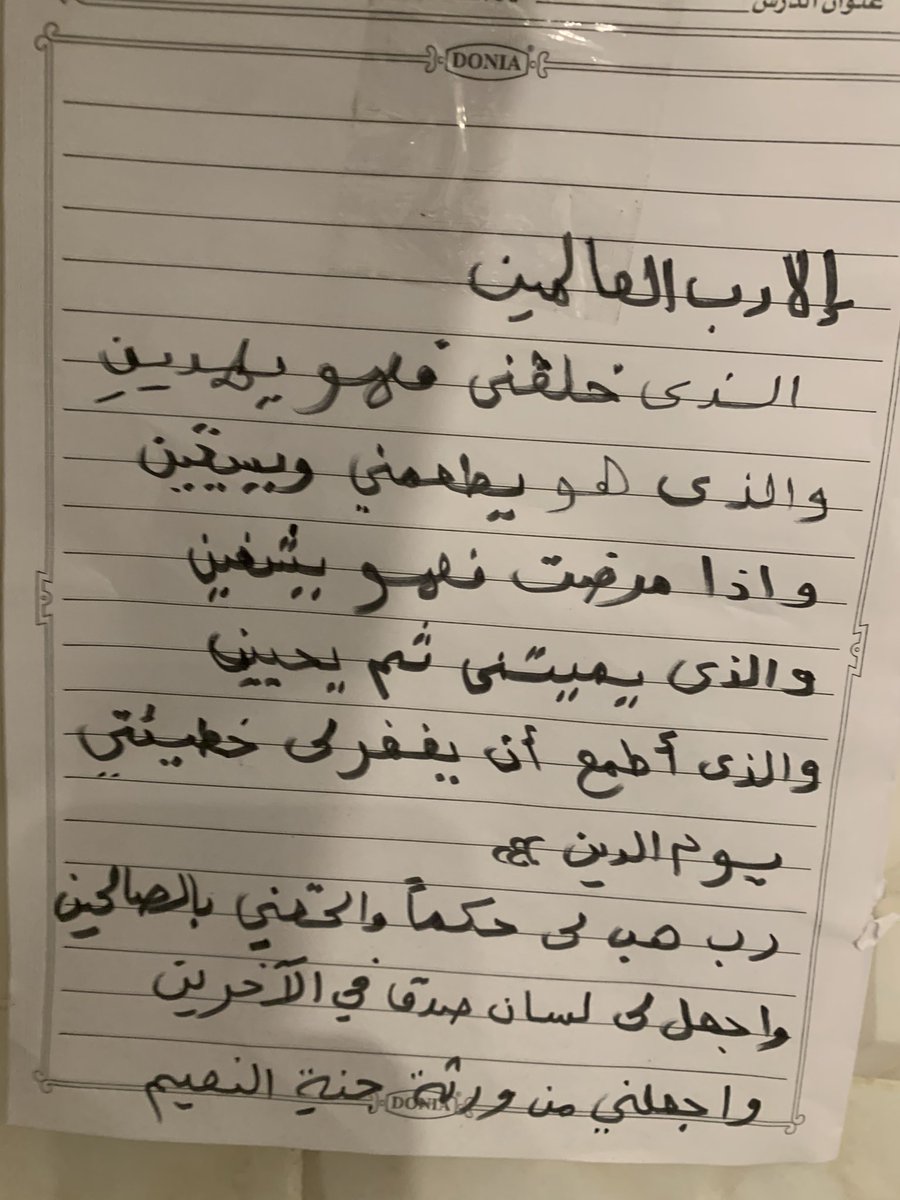 عنوان الدرس
DONIA
إلا رب العالمين
الذى خلقنى فهو يهدينِ
والذى هو يطعمني ويسقين
واذا مرضت فهو يشفين
والذى يميتنى ثم يحيين
والذى أطمع أن يغفر لى خطيئتي
يوم الدين
رب هب لى حكماً والحقني بالصالحين
واجعل لى لسان صدق في الآخرين
واجعلني من ورثة جنة النعيم
DONIA